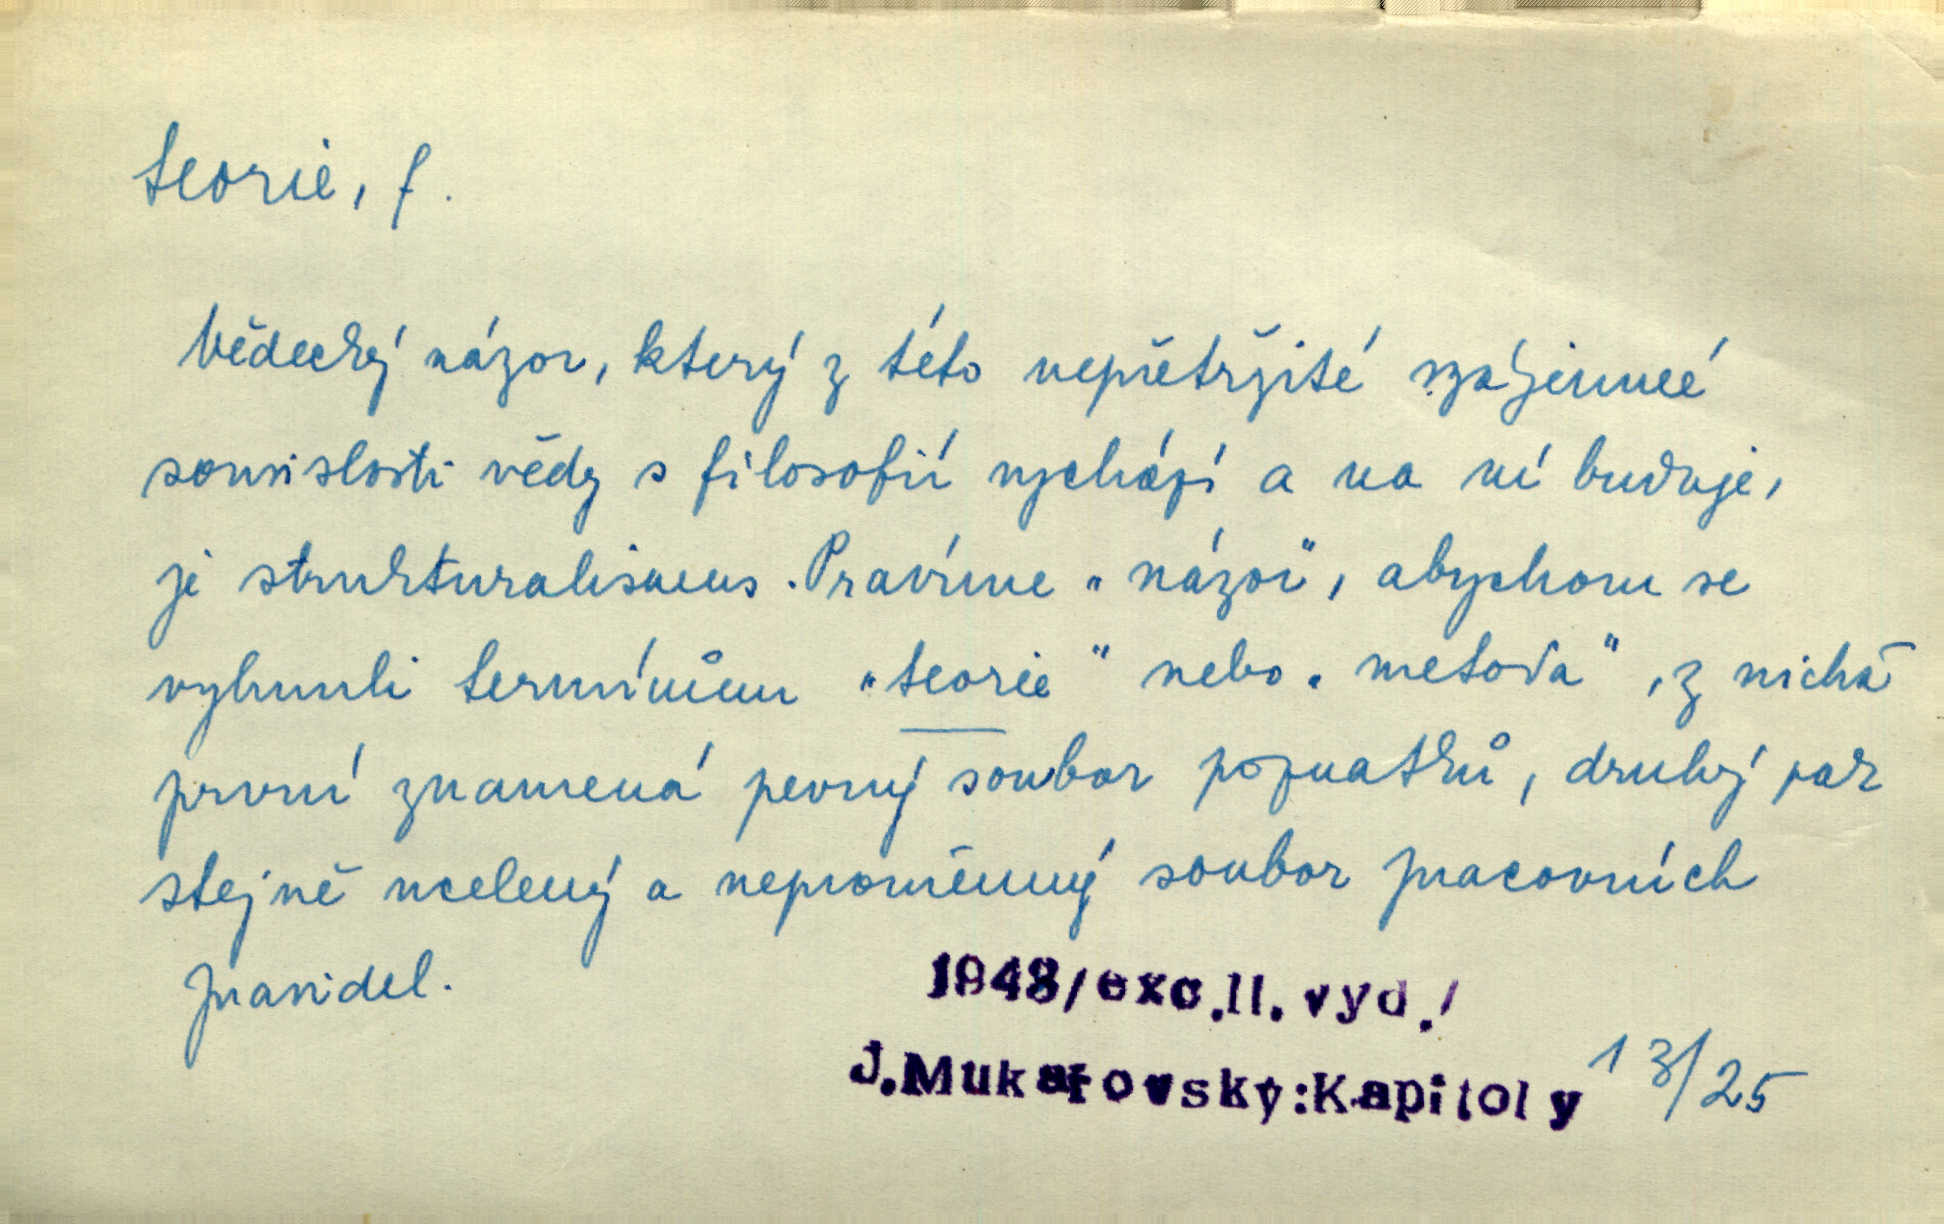 teorie, f.
Vědecký názor, který z této nepřetržité vzájemné
souvislosti vědy s filosofií vychází a na ní buduje,
je strukturalismus. Pravíme „názor", abychom se
vyhnuli termínům „teorie" nebo „metoda", z nichž
první znamená pevný soubor poznatků, druhý pak
stejně ucelený a neproměnný soubor pracovních
pravidel.
1948/exc.II. vyd./
J.Mukařovský:Kapitoly 13/25